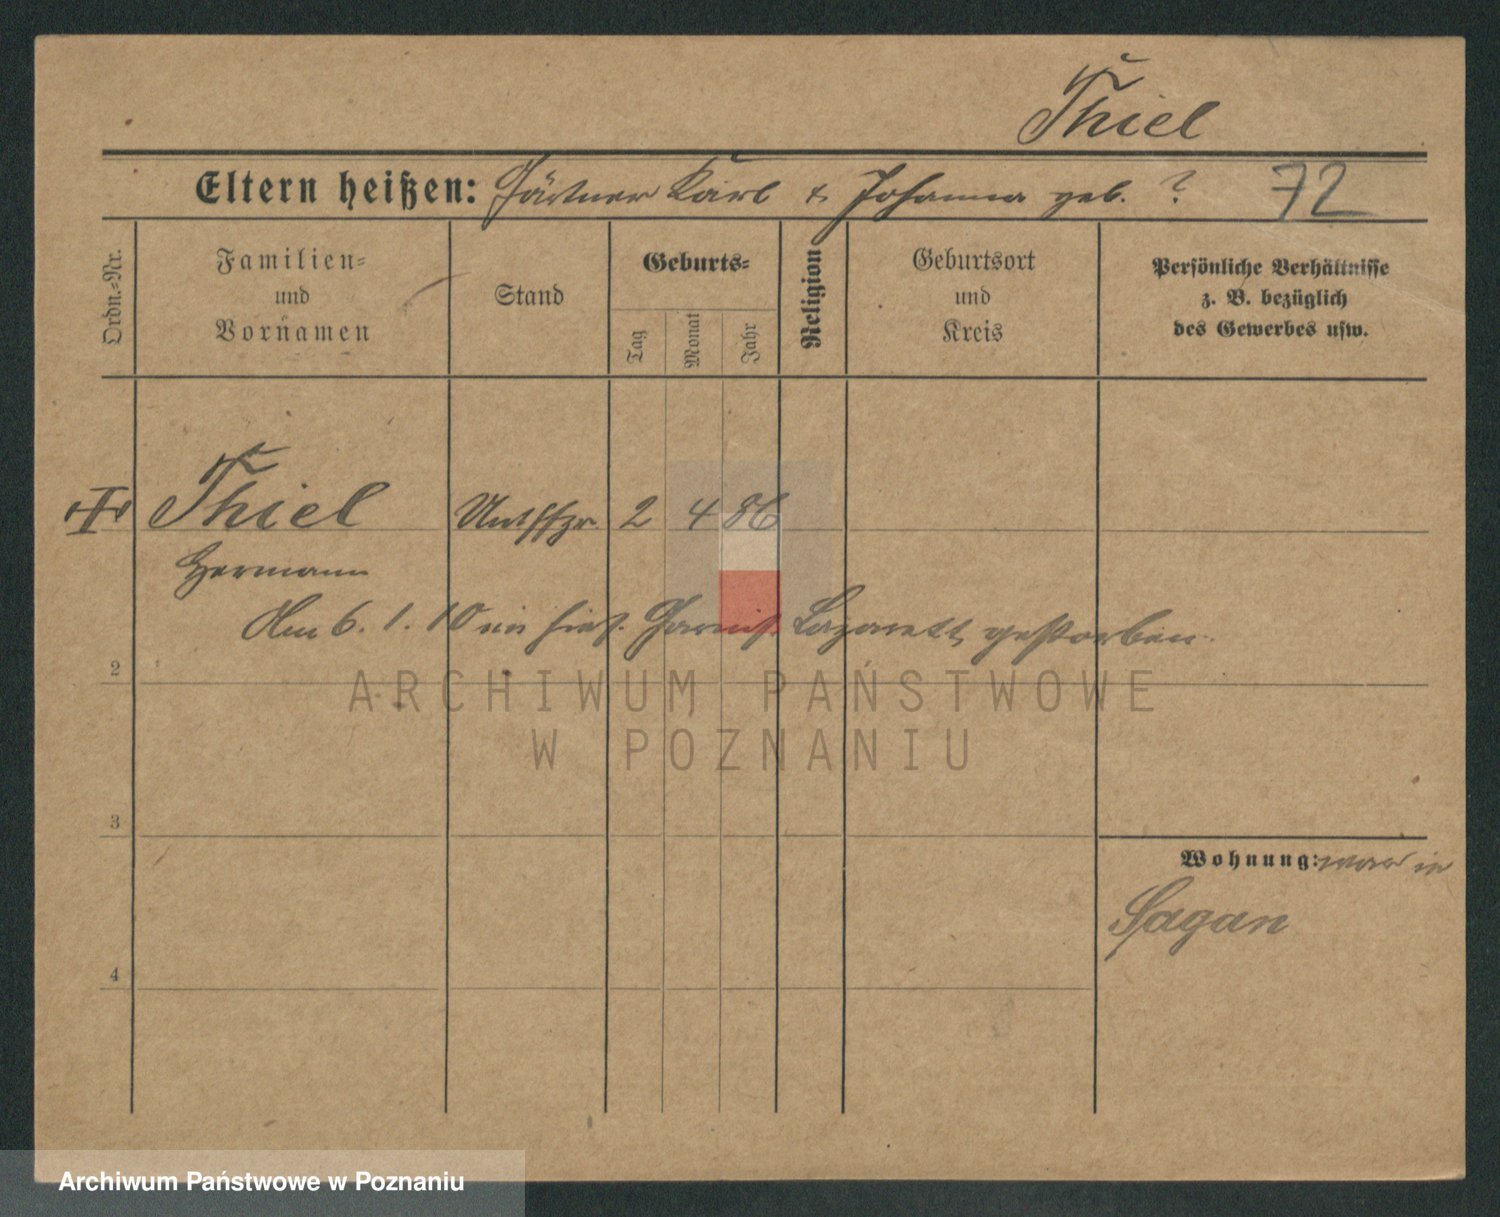 Thiel
Eltern heißen: Gärtner Karl & Johanna geb. ? 72
Ordn.-Nr.
Familien-
und
Vornamen
Stand
Geburts-
Tag
Monat
Jahr
Religion
Geburtsort
und
Kreis
Persönliche Verhältnisse
z. B. bezüglich
des Gewerbes usw.
Thiel Untffzr. 2 4 86
Hermann
Am 6. 1. 10 im hies. Garnis. Lazarett gestorben.
2
ARCHIWUM PAŃSTWOWE
W POZNANIU
3
Wohnung: war in
Sagan
4
Archiwum Państwowe w Poznaniu